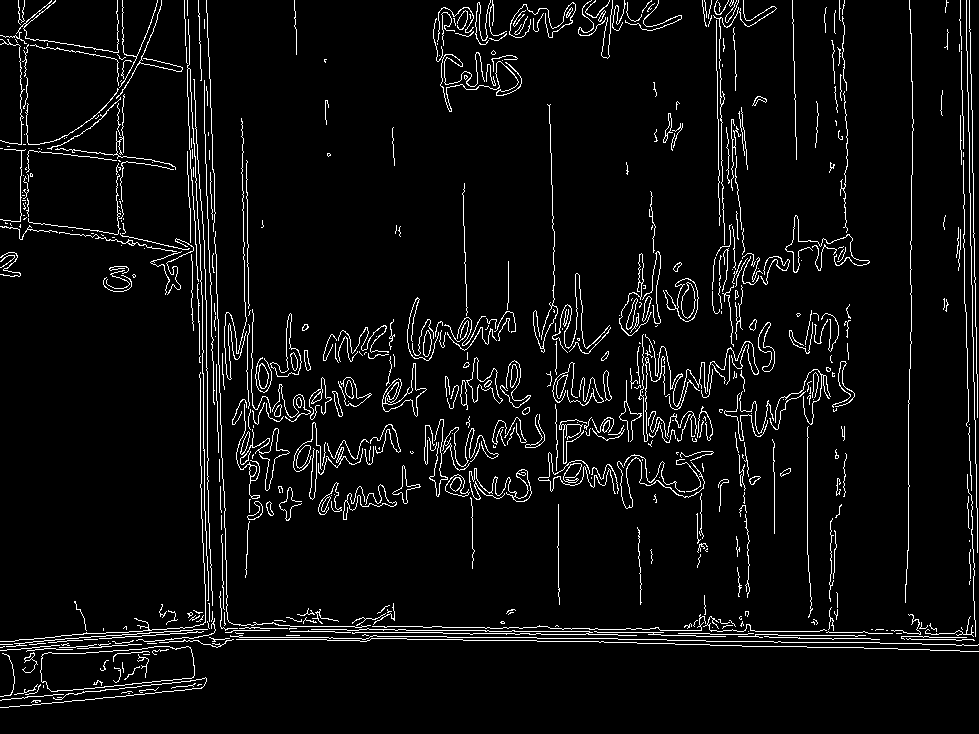 pellentesque vel
felis
Morbi nec lorem vel odio pharetra
molestie et vitae dui Mauris in
est quam. Mauris pretium turpis
sit amet tellus tempus
2 3 x